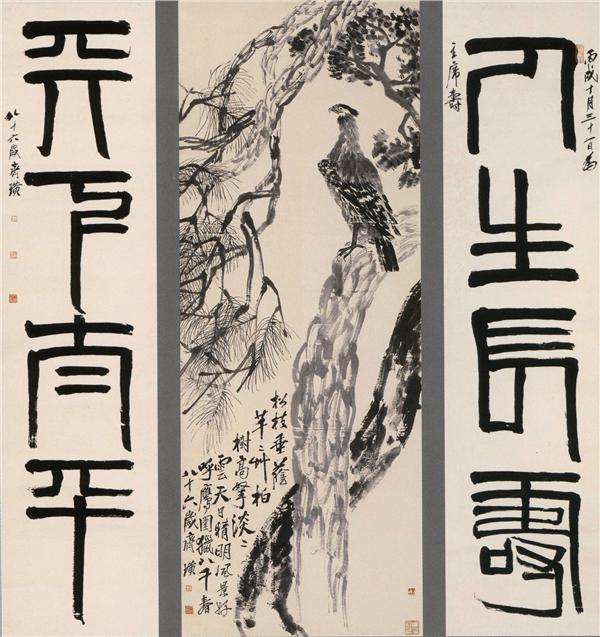 丙戌十月三十一日為
主席壽
人生長壽
松枝垂蔭
芊〻艸柏
樹高擎淡〻
雲天日晴明風景好
呼鷹圍獵八千春
八十六歲齊璜
天下太平
八十六歲齊璜